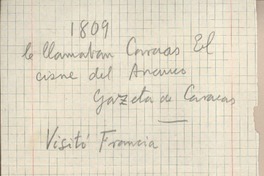 1809
le llamaban Caracas El
cisne del Anauco
Gazeta de Caracas
Visitó Francia